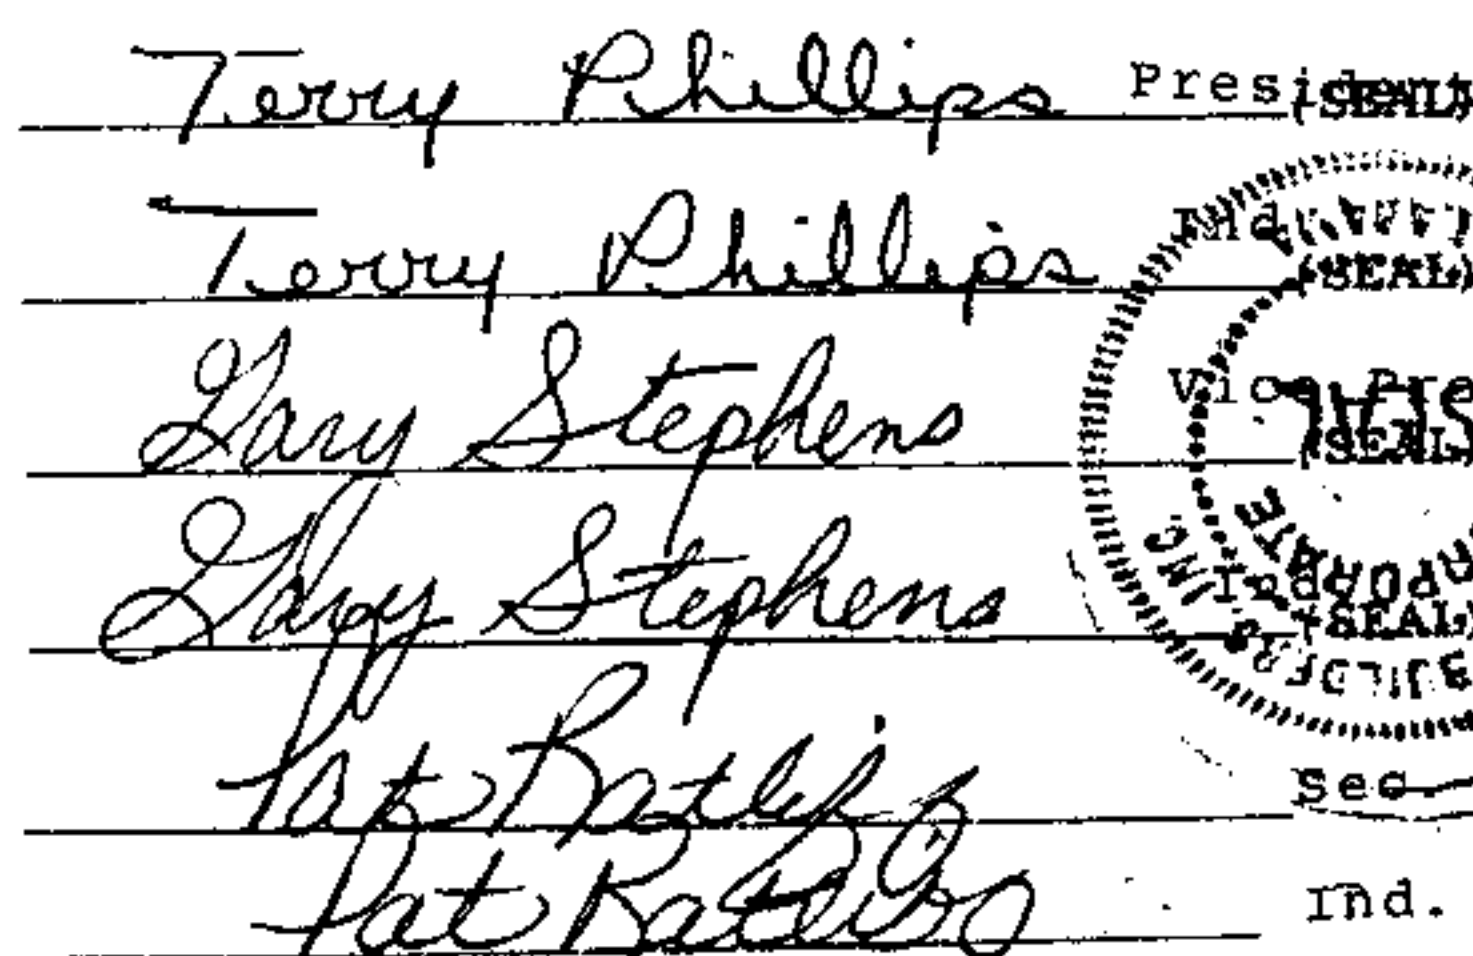 Terry Phillips President (SEAL)
Terry Phillips Ind. (SEAL)
Gary Stephens Vice Pre (SEAL)
Gary Stephens Ind. (SEAL)
Pat Ratliff Sec
Pat Ratliff Ind.
BUILDERS, INC.